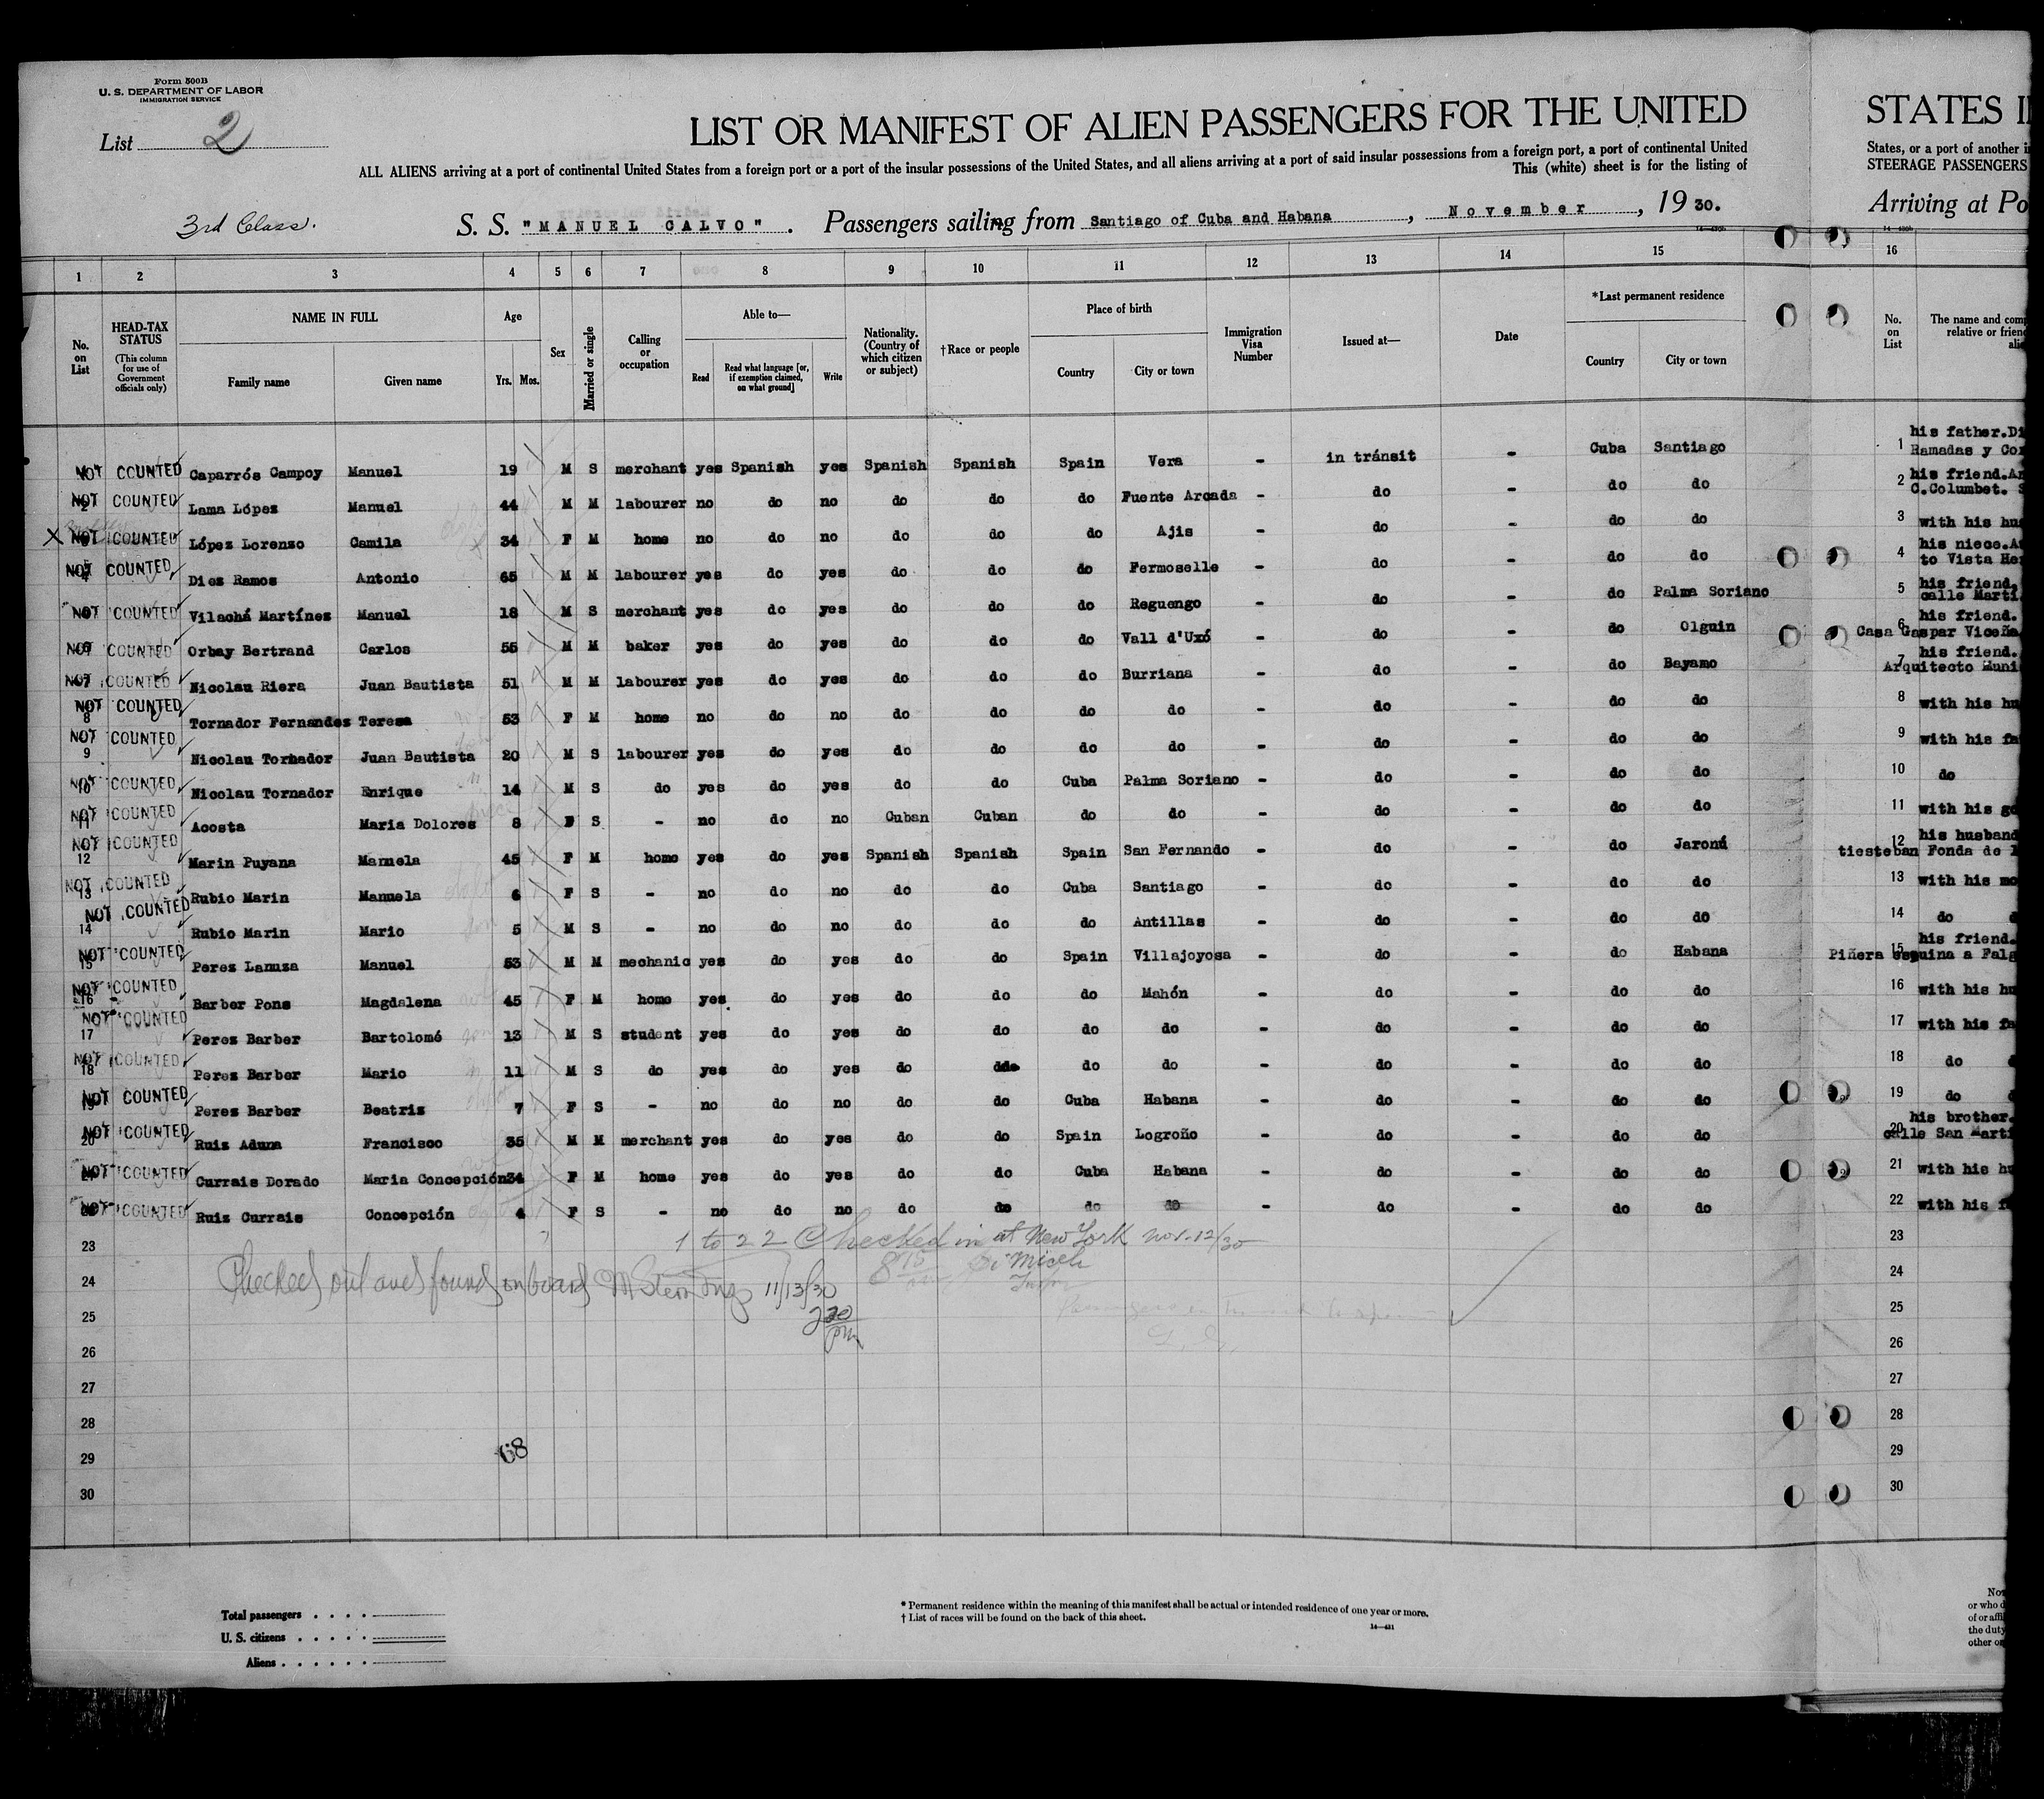 Form 500B
U. S. DEPARTMENT OF LABOR
IMMIGRATION SERVICE
List 2
LIST OR MANIFEST OF ALIEN PASSENGERS FOR THE UNITED
ALL ALIENS arriving at a port of continental United States from a foreign port or a port of the insular possessions of the United States, and all aliens arriving at a port of said insular possessions from a foreign port, a port of continental United
This (white) sheet is for the listing of
3rd Class. S. S. "MANUEL CALVO". Passengers sailing from Santiago of Cuba and Habana, November, 19 30.
STATES I
States, or a port of another i
STEERAGE PASSENGERS
Arriving at Po
1 2 3 4 5 6 7 8 9 10 11 12 13 14 15 16
No. on List
HEAD-TAX STATUS (This column for use of Government officials only)
NAME IN FULL Family name Given name
Age Yrs. Mos.
Sex
Married or single
Calling or occupation
Able to— Read Read what language [or, if exemption claimed, on what ground] Write
Nationality. (Country of which citizen or subject)
†Race or people
Place of birth Country City or town
Immigration Visa Number
Issued at—
Date
*Last permanent residence Country City or town
No. on List
The name and com
relative or frien
ali
NOT COUNTED Caparrós Campoy Manuel 19 M S merchant yes Spanish yes Spanish Spanish Spain Vera - in tránsit - Cuba Santiago 1 his father.Di
Ramadas y Co
NOT COUNTED 2 Lama López Manuel 44 M M labourer no do no do do do Fuente Arcada - do - do do 2 his friend.An
C.Columbet. S
X NOT COUNTED López Lorenzo Camila 34 F M home no do no do do do Ajis - do - do do 3 with his hus
NOT COUNTED 4 Diez Ramos Antonio 65 M M labourer yes do yes do do do Fermoselle - do - do do 4 his niece.A
to Vista He
NOT COUNTED Vilachá Martínez Manuel 18 M S merchant yes do yes do do do Reguengo - do - do Palma Soriano 5 his friend.
calle Marti
NOT COUNTED 6 Orbay Bertrand Carlos 55 M M baker yes do yes do do do Vall d'Uxó - do - do Olguin 6 his friend.
Casa Gaspar Viceña
NOT COUNTED 7 Nicolau Riera Juan Bautista 51 M M labourer yes do yes do do do Burriana - do - do Bayamo 7 his friend.
Arquitecto Muni
NOT COUNTED 8 Tornador Fernandes Teresa 53 F M home no do no do do do do - do - do do 8 with his hu
NOT COUNTED 9 Nicolau Tornador Juan Bautista 20 M S labourer yes do yes do do do do - do - do do 9 with his fa
NOT COUNTED 10 Nicolau Tornador Enrique 14 M S do yes do yes do do Cuba Palma Soriano - do - do do 10 do
NOT COUNTED 11 Acosta Maria Dolores 8 F S - no do no Cuban Cuban do do - do - do do 11 with his go
NOT COUNTED 12 Marin Puyana Manuela 45 F M home yes do yes Spanish Spanish Spain San Fernando - do - do Jaronú 12 his husband
tiesteban Fonda de l
NOT COUNTED 13 Rubio Marin Manuela 6 F S - no do no do do Cuba Santiago - do - do do 13 with his mo
NOT COUNTED 14 Rubio Marin Mario 5 M S - no do no do do do Antillas - do - do do 14 do
NOT COUNTED 15 Perez Lanuza Manuel 53 M M mechanic yes do yes do do Spain Villajoyosa - do - do Habana 15 his friend.
Piñera esquina a Falg
NOT COUNTED 16 Barber Pons Magdalena 45 F M home yes do yes do do do Mahón - do - do do 16 with his hu
NOT COUNTED 17 Perez Barber Bartolomé 13 M S student yes do yes do do do do - do - do do 17 with his fa
NOT COUNTED 18 Perez Barber Mario 11 M S do yes do yes do do do do - do - do do 18 do
NOT COUNTED 19 Perez Barber Beatriz 7 F S - no do no do do Cuba Habana - do - do do 19 do
NOT COUNTED 20 Ruiz Aduna Francisco 35 M M merchant yes do yes do do Spain Logroño - do - do do 20 his brother.
calle San Marti
NOT COUNTED 21 Currais Dorado Maria Concepción 34 F M home yes do yes do do Cuba Habana - do - do do 21 with his hu
NOT COUNTED Ruiz Currais Concepción 4 F S - no do no do do do do - do - do do 22 with his f
23 1 to 22 Checked in at New York Nov. 12/30 23
8 15
24 Checked out and found on board 11/13/30 24
25 2 30 pm 25
26 26
27 27
28 28
68
29 29
30 30
Total passengers
U. S. citizens
Aliens
* Permanent residence within the meaning of this manifest shall be actual or intended residence of one year or more.
† List of races will be found on the back of this sheet.
14—431
No
or who d
of or affi
the duty
other or